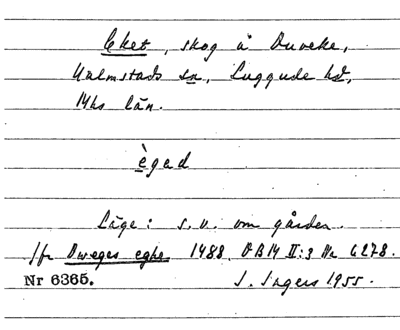 Eket, skog å Duveke,
Halmstads sn, Luggude hd,
Mhs län.
ègad
Läge: s.v. om gården.
Jfr Dweges eghe 1488. ÖB14 II:3 Nr 6278.
Nr 6365. J. Sagers 1955.